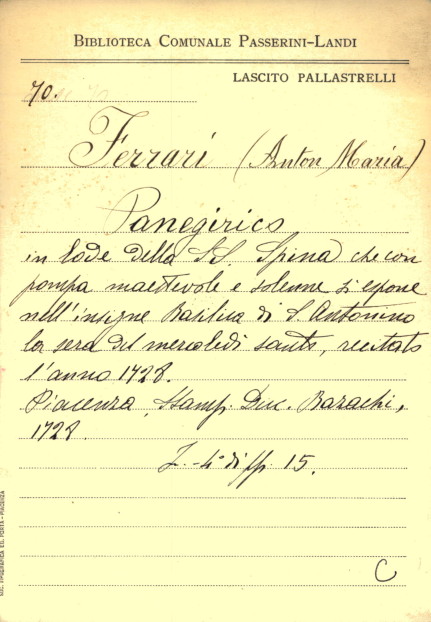 BIBLIOTECA COMUNALE PASSERINI-LANDI
LASCITO PALLASTRELLI
70.
Ferrari (Anton Maria)
Panegirico
in lode della SS. Spina che con
pompa maestevole e solenne si espone
nell'insigne Basilica di S. Antonino
la sera del mercoledì santo, recitato
l'anno 1728.
Piacenza, Stamp. Duc. Bazachi,
1728.
4° di pp. 15.
C